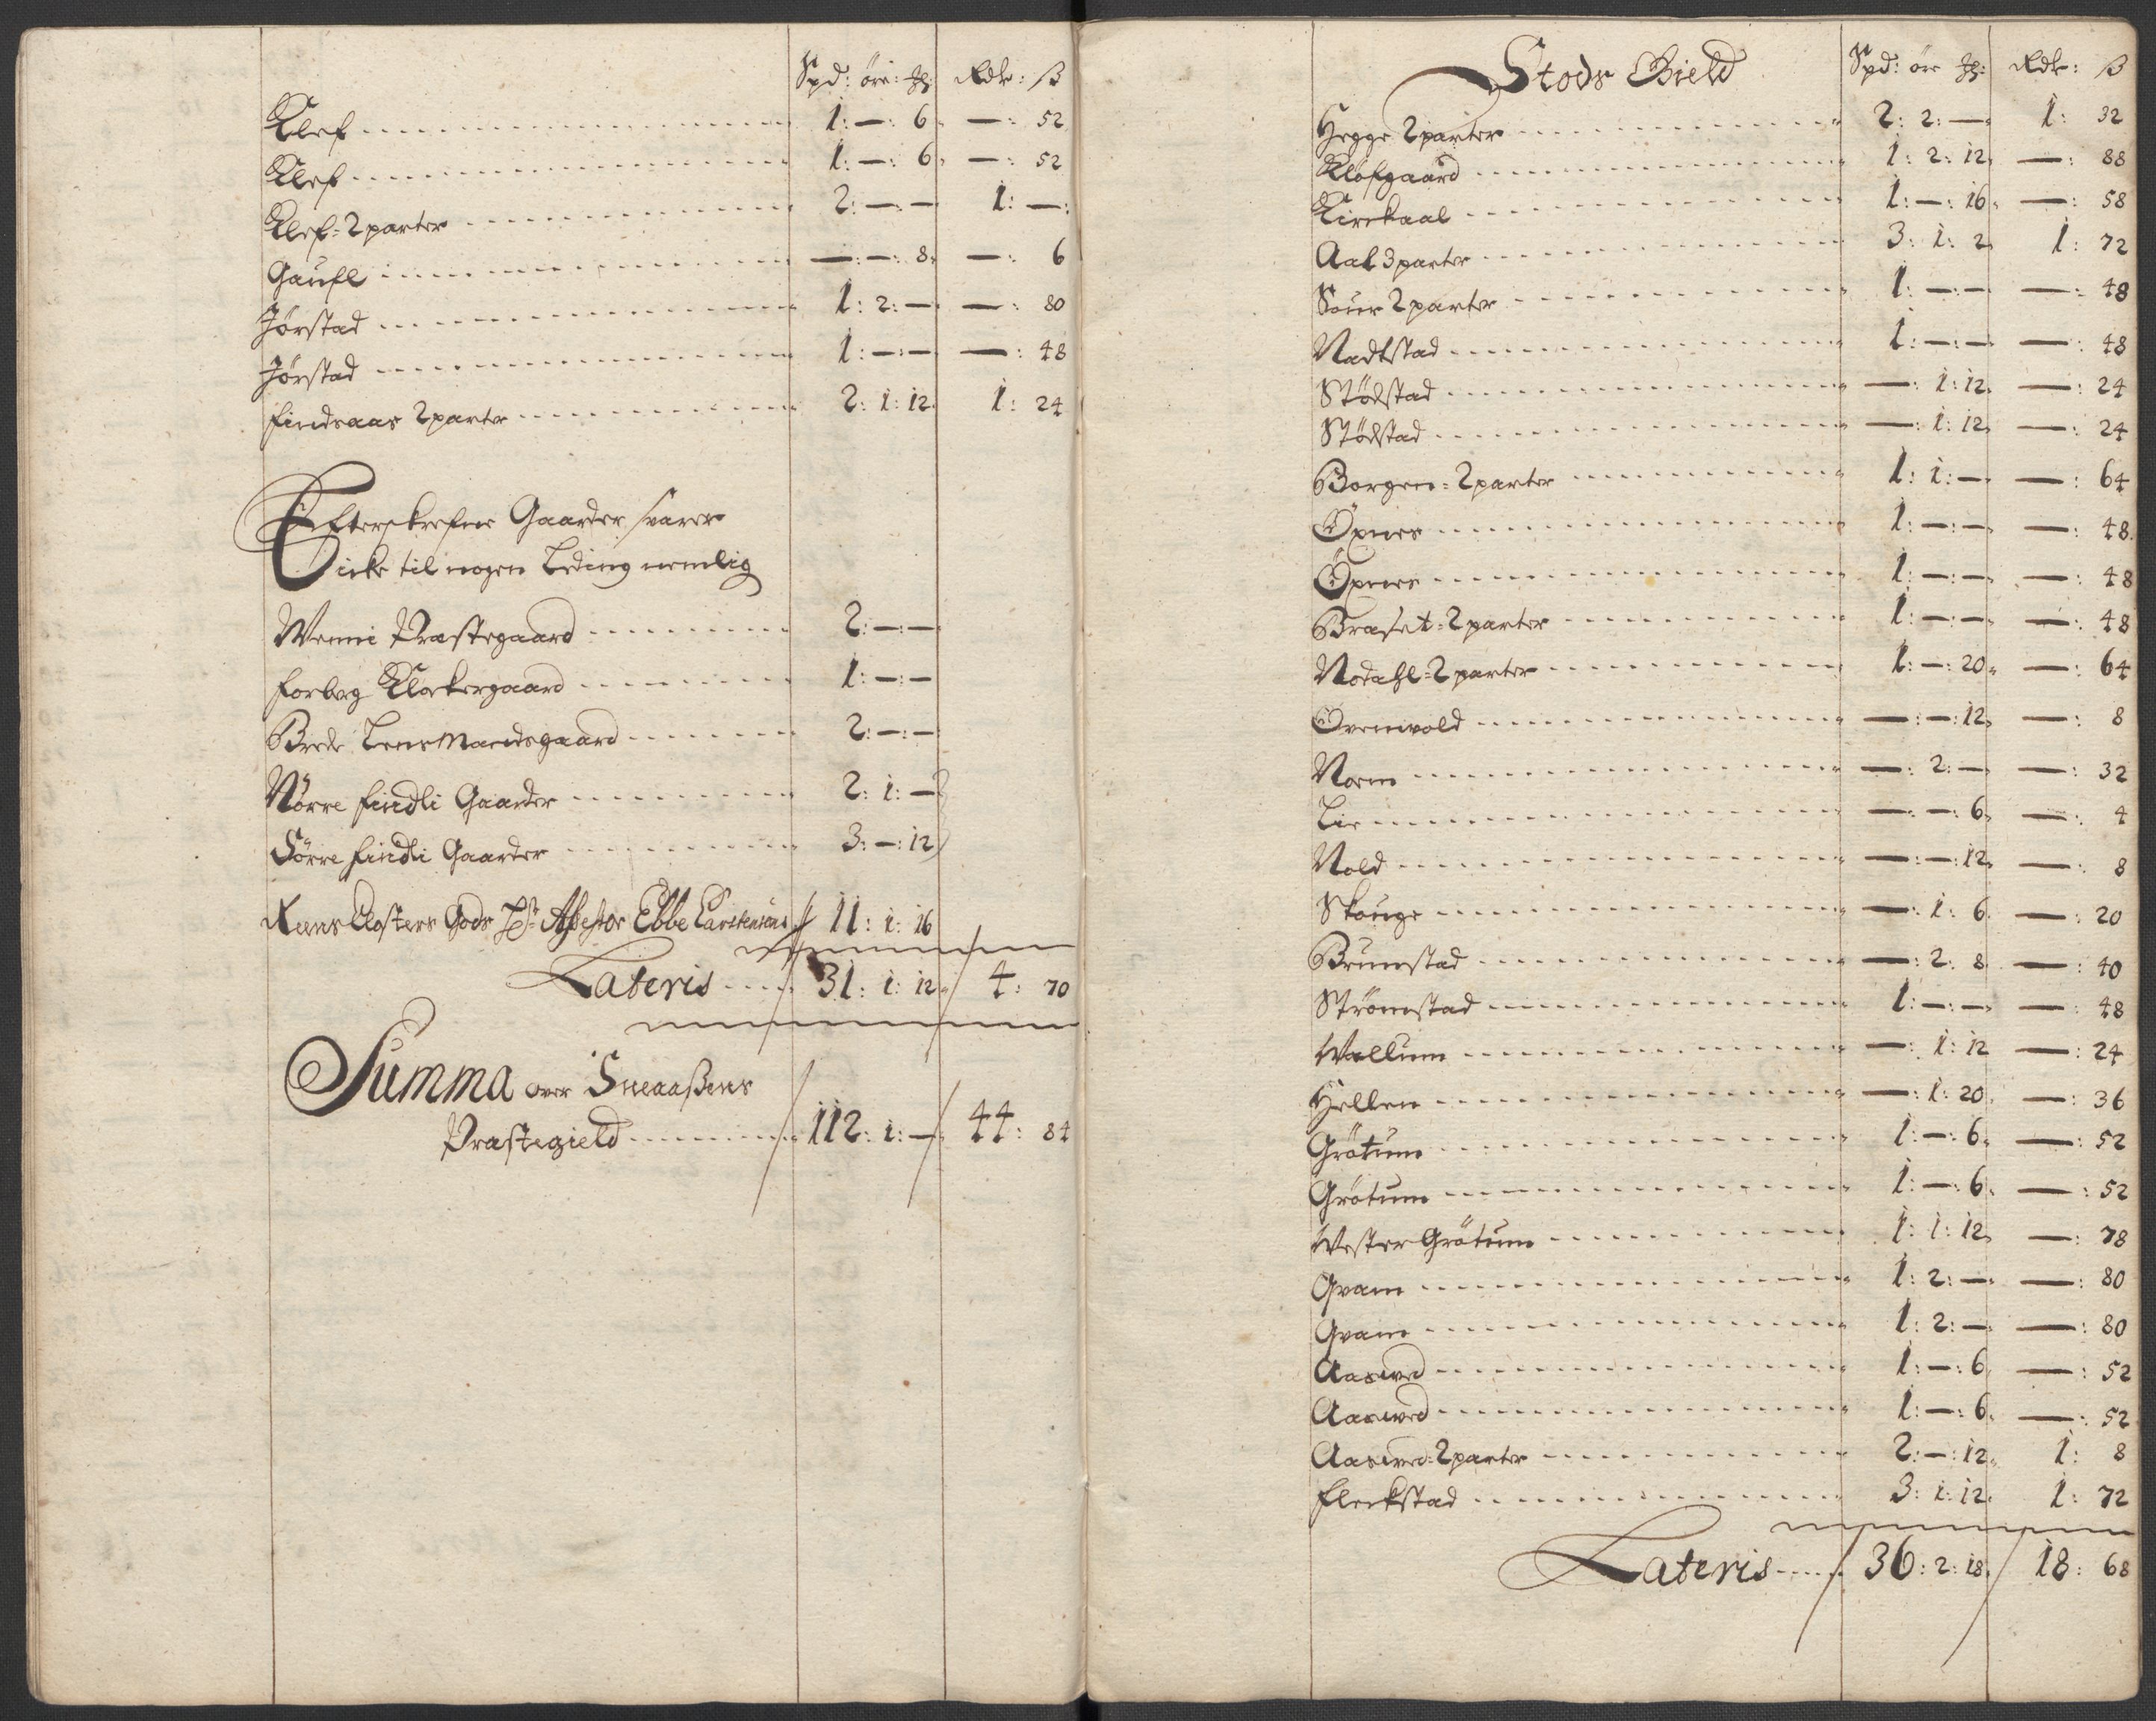 Spd: öre: ₰: Rdr: ß
Klef 1: —: 6: —: 52
Klef 1: —: 6: —: 52
Klef: 2 parter 2: —: — 1: —:
Gaufl —: —: 8: —: 6
Jørstad 1: 2: — —: 80
Jørstad 1: —: — —: 48
Findsaas 2 parter 2: 1: 12 1: 24
Efterskrefne Gaarder svarer
icke til nogen Leding nemlig
Wenni Præstegaard 2: —: —
Forberg Klockergaard 1: —: —
Brede Lensmandsgaard 2: —: —
Nörre Findli Gaarder 2: 1: —
Sörre Findli Gaarder 3: —: 12
Reens Closters Gods Hr Assessor Ebbe Carstensens 11: 1: 16
Lateris 31: 1: 12 4: 70
Summa over Sneaaßens
Præstegield 112: 1: — 44: 84
Stods Gield Spd: öre ₰: Rdr: ß
Hegge 2 parter 2: 2: — 1: 32
Kløfgaard 1: 2: 12 —: 88
Kirckaal 1: —: 16 —: 58
Aal 3 parter 3: 1: 2 1: 72
Sour 2 parter 1: —: — —: 48
Nadtstad 1: —: — —: 48
Stödstad —: 1: 12 —: 24
Stödstad —: 1: 12 —: 24
Borgen: 2 parter 1: 1: — —: 64
Öxner 1: —: — —: 48
Öxner 1: —: — —: 48
Braset: 2 parter 1: —: — —: 48
Nodahl: 2 parter 1: —: 20 —: 64
Ovenwold —: —: 12 —: 8
Noem —: 2: — —: 32
Lie —: —: 6 —: 4
Nold —: —: 12 —: 8
Skouge —: 1: 6 —: 20
Brunstad —: 2: 8 —: 40
Strömstad 1: —: — —: 48
Wællum —: 1: 12 —: 24
Hellen —: 1: 20 —: 36
Grötum 1: —: 6 —: 52
Grötum 1: —: 6 —: 52
Wester Grötum 1: 1: 12 —: 78
Gvam 1: 2: — —: 80
Gvam 1: 2: — —: 80
Aasved 1: —: 6 —: 52
Aasved 1: —: 6 —: 52
Aasved: 2 parter 2: —: 12 1: 8
Fleckstad 3: 1: 12 1: 72
Lateris 36: 2: 18 18: 68